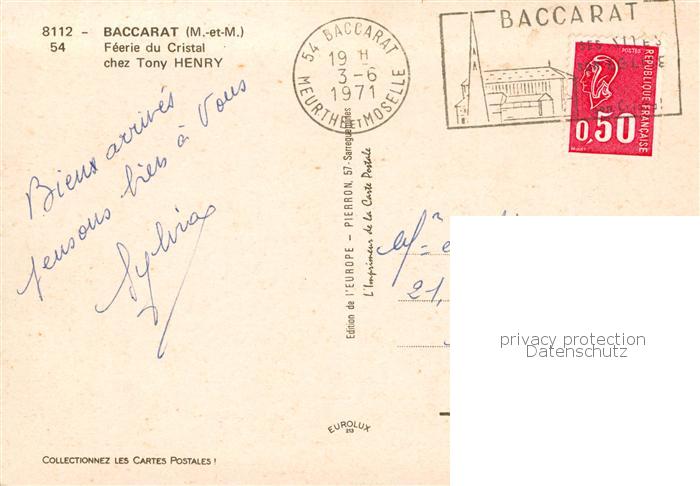 8112 - BACCARAT (M.-et-M.)
54 Féerie du Cristal
chez Tony HENRY
54 BACCARAT
19 H
3-6
1971
MEURTHE ET MOSELLE
BACCARAT
SES SITES
SON EGLISE
son Cristal
POSTES
REPUBLIQUE FRANÇAISE
0,50
Bien arrivés
pensons bien à Vous
Sylvia
Edition de l'EUROPE - PIERRON, 57-Sarreguemines
L'Imprimeur de la Carte Postale
21,
privacy protection
Datenschutz
EUROLUX
213
COLLECTIONNEZ LES CARTES POSTALES !